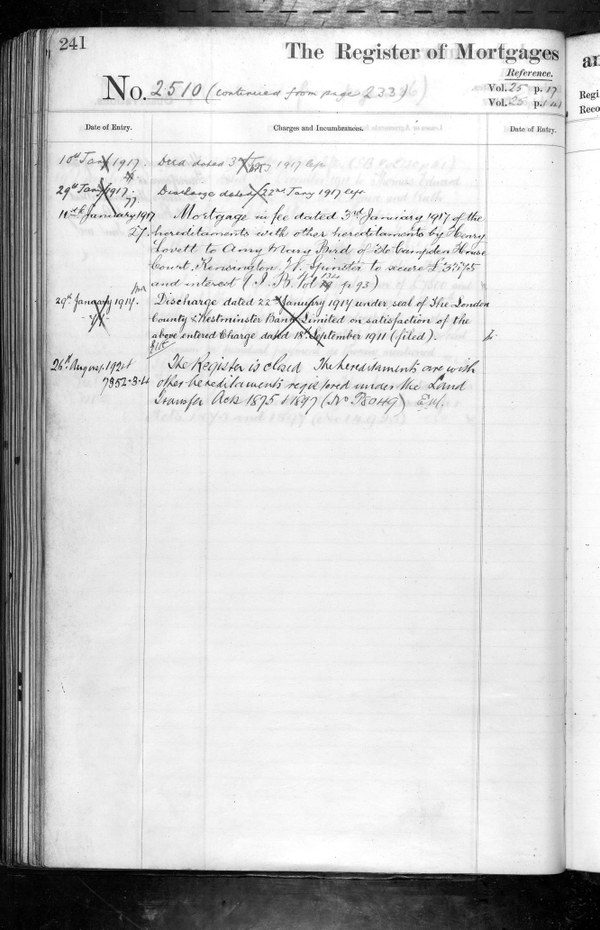 241
The Register of Mortgages
Reference.
No. 2510 (continued from page 233)
Vol. 25 p. 17
Vol. 25 p.
Date of Entry.
Charges and Incumbrances.
Date of Entry.
10th Jany 1917 Deed dated 3rd Jany 1917 left
29th Jany 1917. Discharge dated 22nd Jany 1917 left
77
January 1917 Mortgage in fee dated 3rd January 1917 of the
27. hereditaments with other hereditaments by Henry
Lovett to Amy Mary Bird of Campden House
Court Kensington W. Spinster to secure
and interest (I. B. Vol p. 93)
29th January 1917. Discharge dated 22nd January 1917 under seal of The London
County & Westminster Bank Limited on satisfaction of the
above entered Charge dated 18th September 1911 (filed).
26th August 1924 The Register is closed The hereditaments are with
other hereditaments registered under the Land
Transfer Acts 1875 & 1897 (No P8049)
an
Regi
Reco